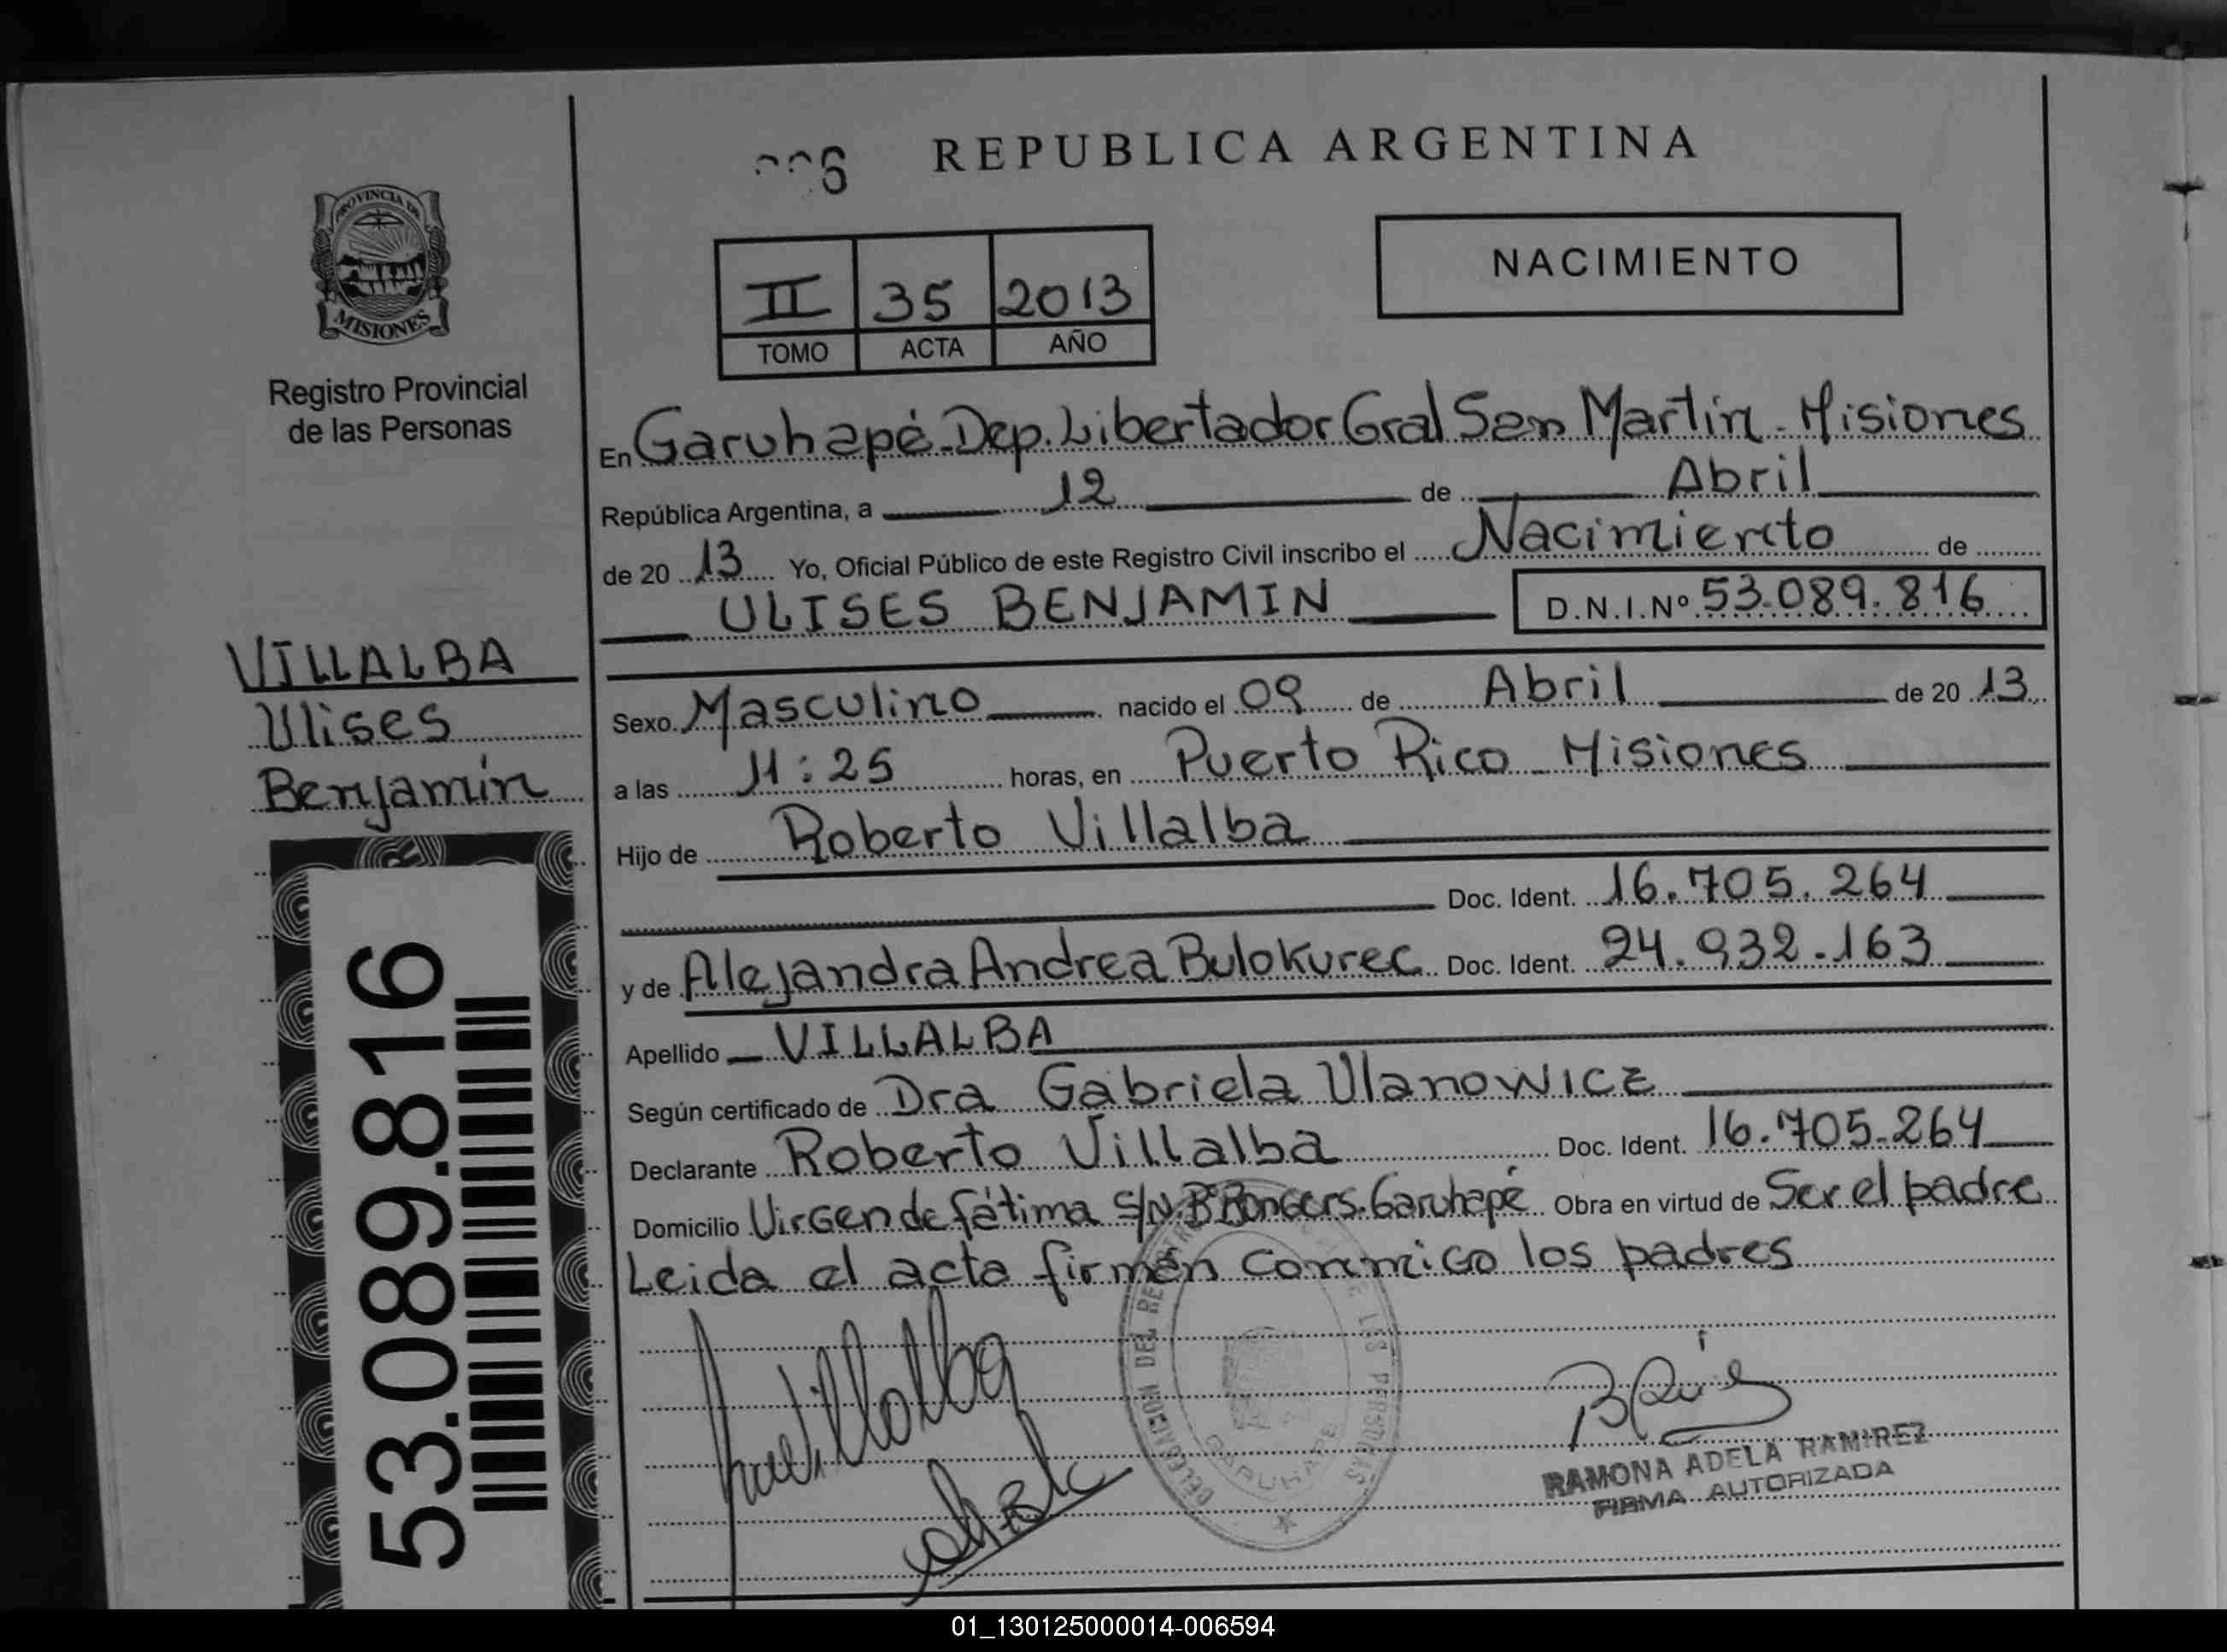 006 REPUBLICA ARGENTINA
PROVINCIA DE
MISIONES
Registro Provincial
de las Personas
II 35 2013
TOMO ACTA AÑO
NACIMIENTO
En Garuhapé-Dep. Libertador Gral San Martín - Misiones
República Argentina, a 12 de Abril
de 2013 Yo, Oficial Público de este Registro Civil inscribo el Nacimiento de
ULISES BENJAMIN D.N.I.Nº 53.089.816
VILLALBA
Ulises
Benjamín
53.089.816
Sexo Masculino nacido el 09 de Abril de 2013
a las 11:25 horas, en Puerto Rico - Misiones
Hijo de Roberto Villalba
Doc. Ident. 16.705.264
y de Alejandra Andrea Bulokurec Doc. Ident. 24.932.163
Apellido VILLALBA
Según certificado de Dra Gabriela Ulanowicz
Declarante Roberto Villalba Doc. Ident. 16.705.264
Domicilio Virgen de fátima S/N. Bº Bongers. Garuhapé Obra en virtud de Ser el padre
Leida el acta firman conmigo los padres
DELEGACION DEL REGISTRO DE LAS PERSONAS
GARUHAPE
RAMONA ADELA RAMIREZ
FIRMA AUTORIZADA
01_130125000014-006594